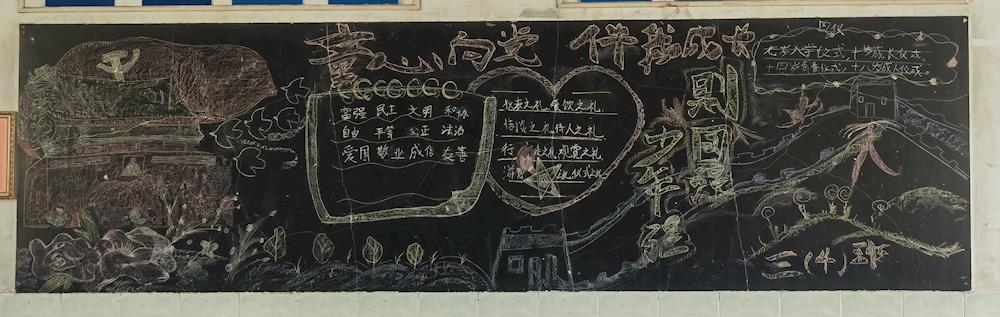 童心向党 伴我成长
富强 民主 文明 和谐
自由 平等 公正 法治
爱国 敬业 成信 友善
仪表之礼 餐饮之礼
待人之礼
行走之礼 观赏之礼
游 之礼 仪式之礼
四仪
七岁入学仪式，十岁成长仪式
十四岁青春仪式，十八岁成人仪式
三（4）班